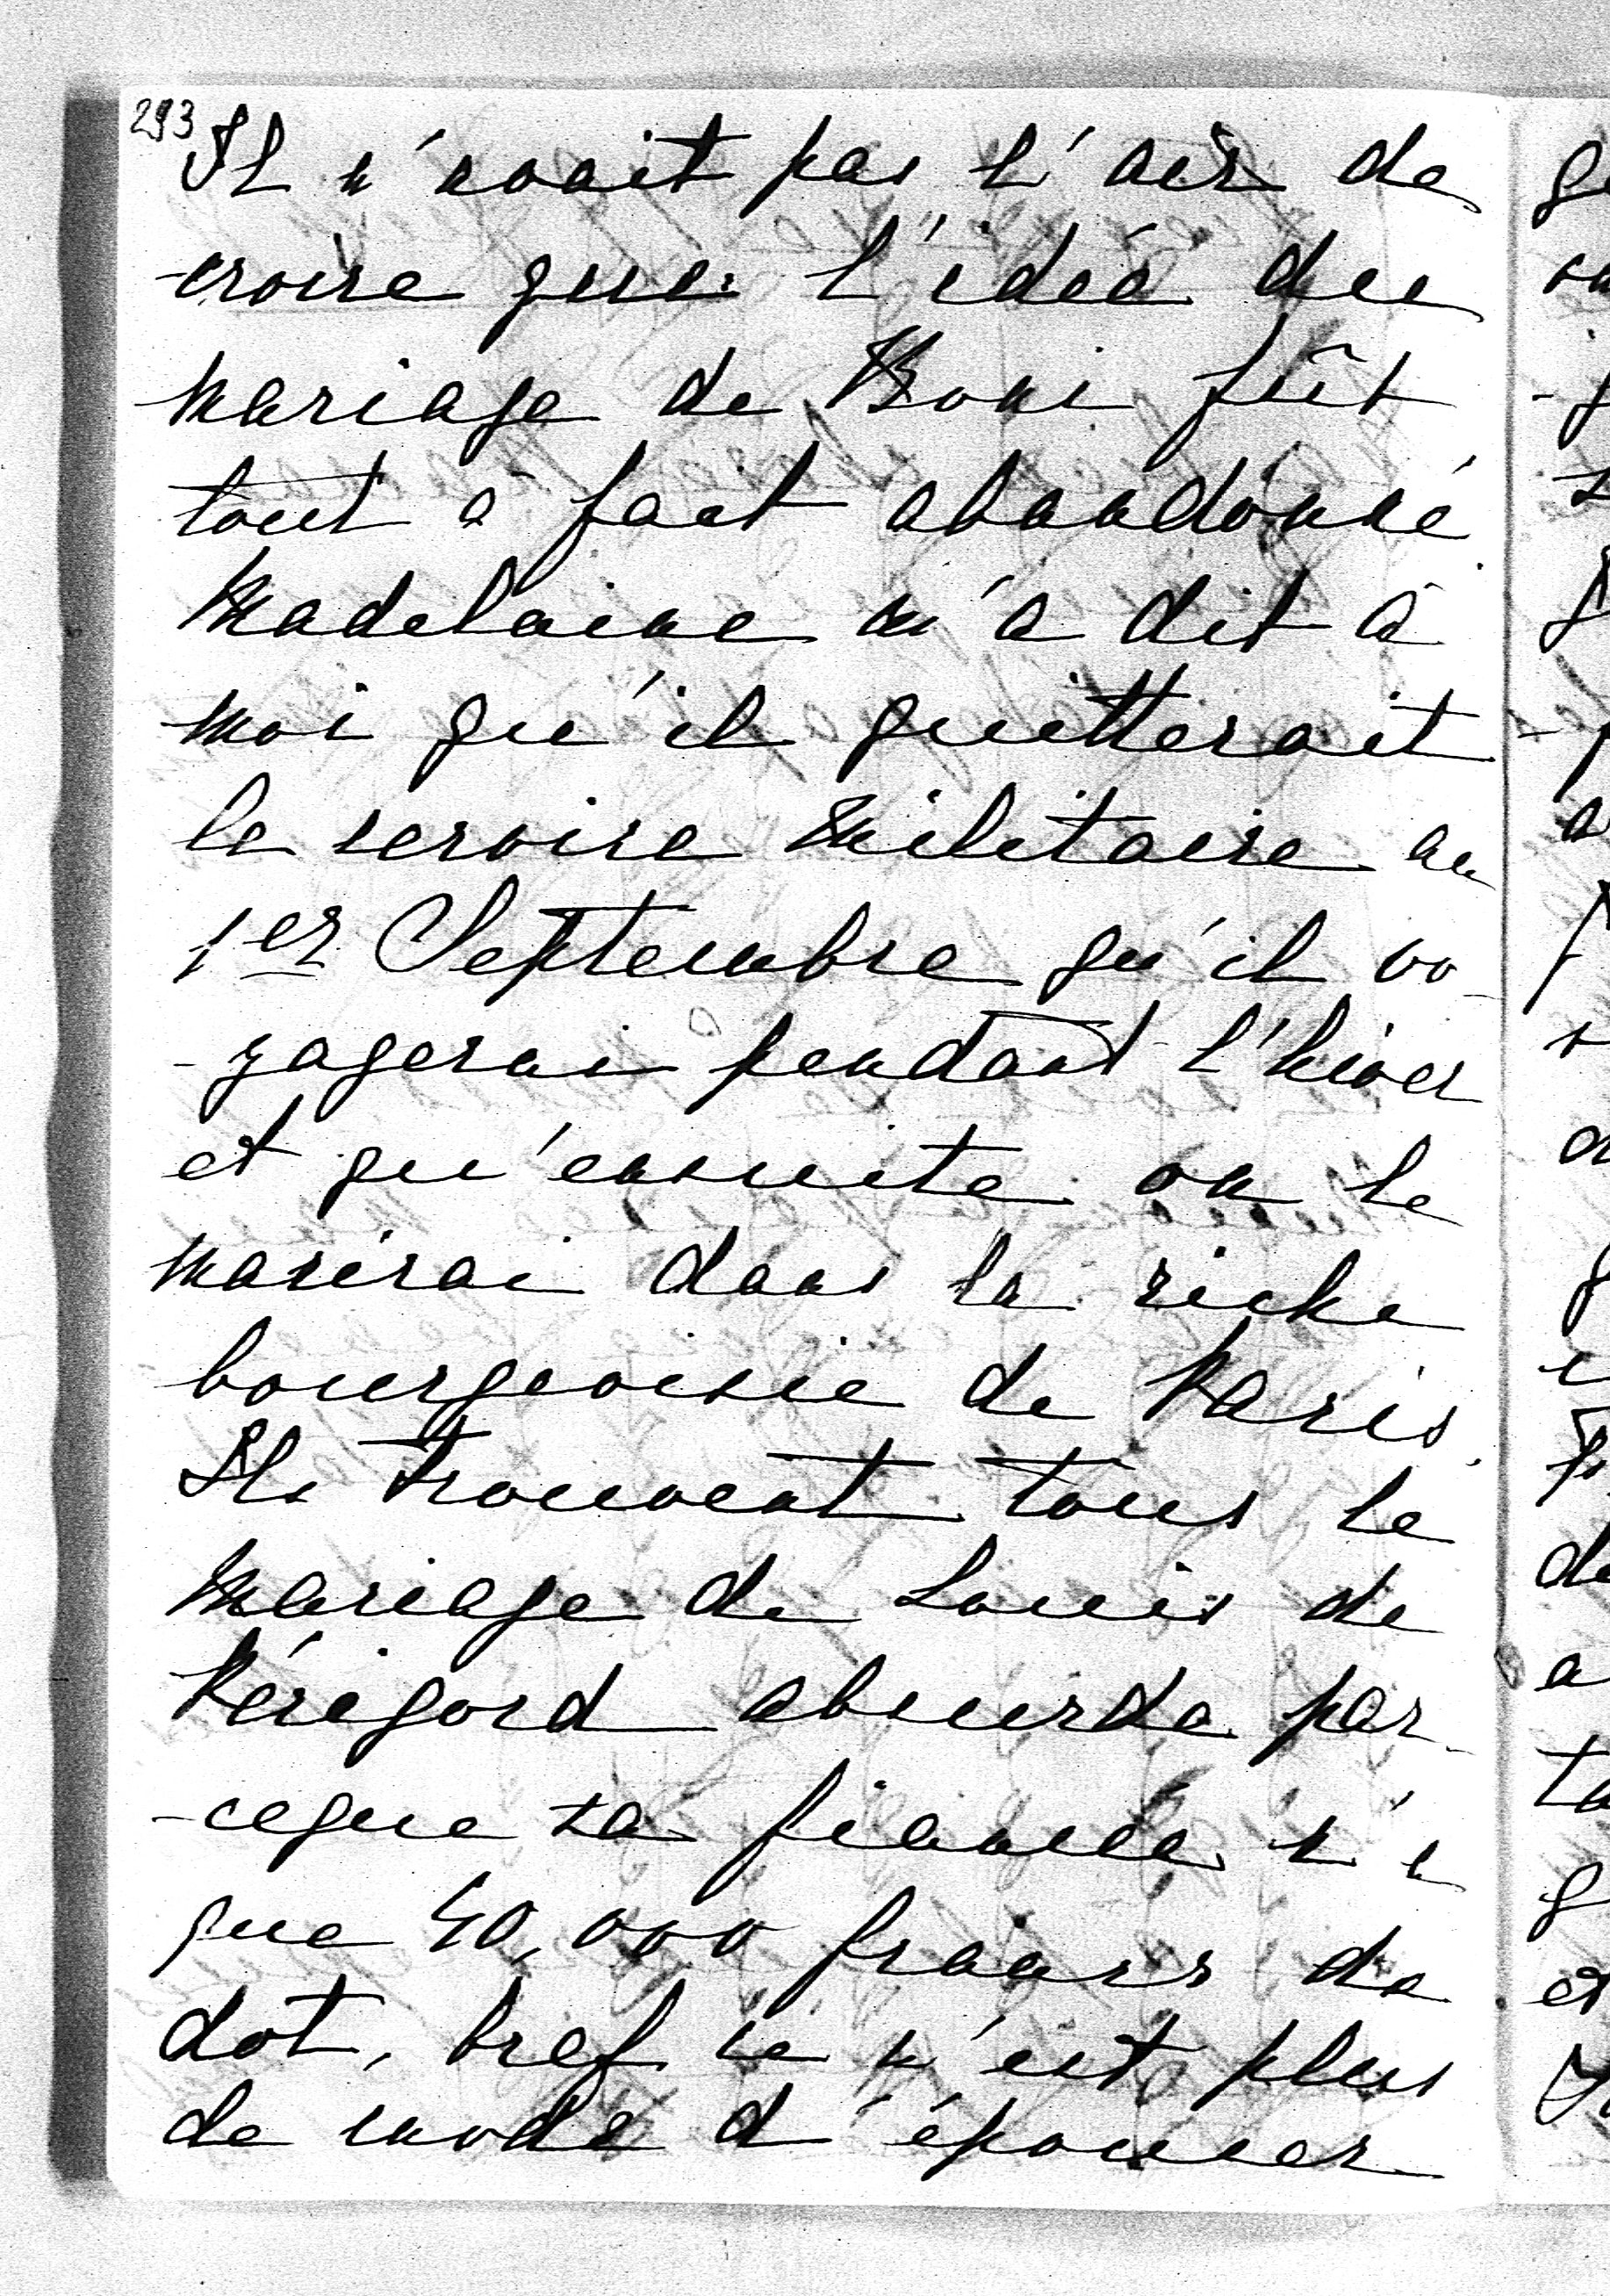 293
Il n'avait pas l'air de
croire que l'idée du
mariage de Boni fût
tout à fait abandonné
Madelaine m'a dit à
moi qu'il quitterait
le servise militaire au
1er Septembre qu'il vo-
-yagerai pendant l'hiver
et qu'ensuite on le
marirai dans la riche
bourgeoisie de Paris.
Ils trouvent tous le
mariage de Louis de
Périgord absurde par-
-ceque sa fiancée n'a
que 40,000 francs de
dot, bref ce n'est plus
de mode d'épouser